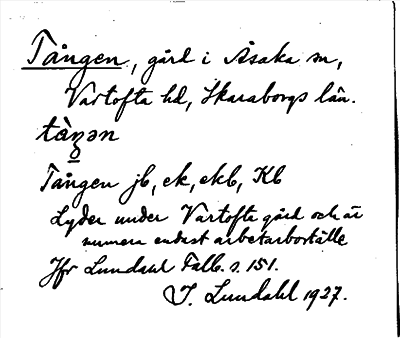 Tången, gård i Åsaka sn,
Vartofta hd, Skaraborgs län.
tàŋən
o
Tången jb, ek, ekb, Kb
Lyder under Vartofta gård och är
numera endast arbetarboställe
Jfr Lundahl Falb. s. 151.
I. Lundahl 1927.